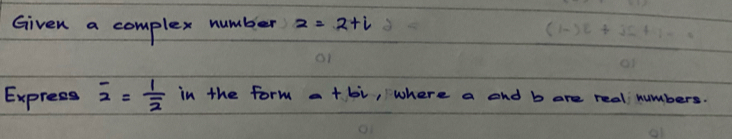 Given a complex number z = 2+i
Express z̄ = 1/z̄ in the form a + bi, where a and b are real numbers.